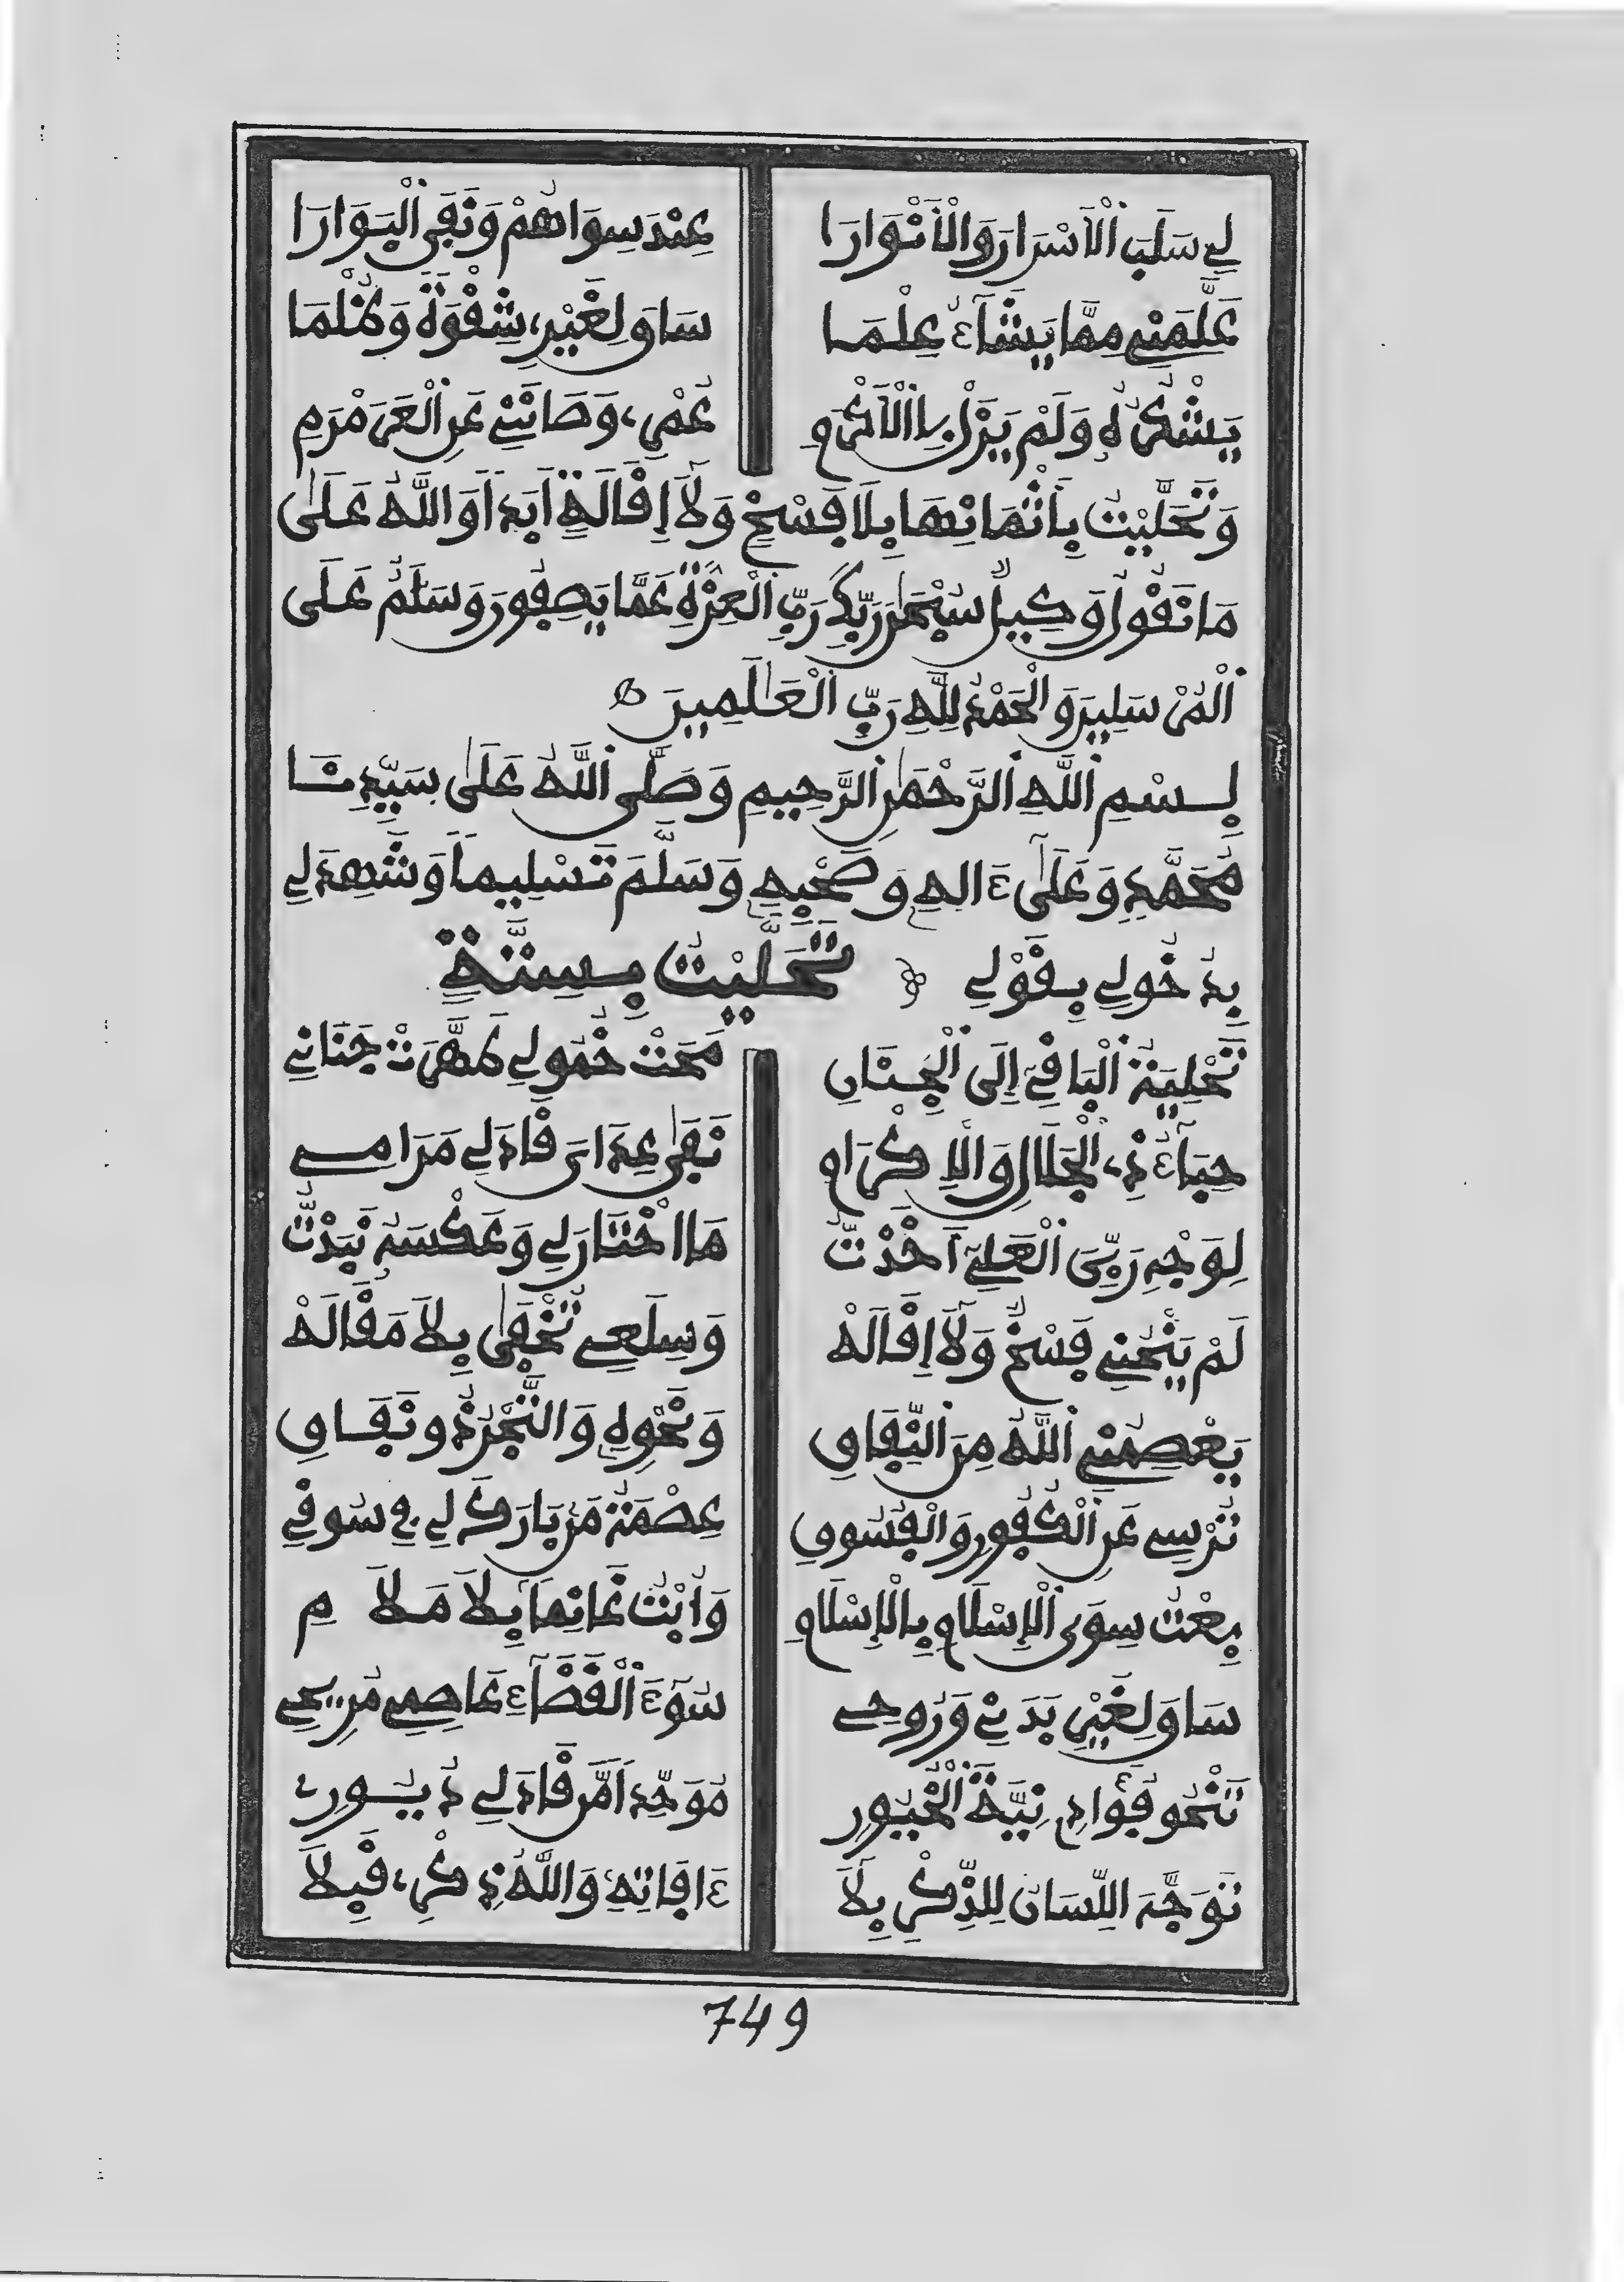 لِي سَلَبَ الْأَسْرَارَ وَالْأَنْوَارَا عِنْدَ سِوَاهُمْ وَنَفَى الْبَوَارَا
عَلَّمَنِي مِمَّا يَشَاءُ عِلْمَا سَاقَ لِغَيْرِي شِقْوَةً وَظُلْمَا
يَشْكُرُهُ وَلَمْ يَزَلْ بِالْأَكْرَمِ عُمْرِي وَصَانَنِي عَنِ الْعَرَمْرَمِ
وَتَخَلَّيْتُ بِأَثْمَانِهَا بِلَا فَسْخٍ وَلَا إِقَالَةٍ أَبَدًا وَاللَّهُ عَلَى
مَا نَقُولُ وَكِيلٌ سُبْحَانَ رَبِّكَ رَبِّ الْعِزَّةِ عَمَّا يَصِفُونَ وَسَلَامٌ عَلَى
الْمُرْسَلِينَ وَالْحَمْدُ لِلَّهِ رَبِّ الْعَالَمِينَ
بِسْمِ اللَّهِ الرَّحْمَنِ الرَّحِيمِ وَصَلَّى اللَّهُ عَلَى سَيِّدِنَا
مُحَمَّدٍ وَعَلَى ءَالِهِ وَصَحْبِهِ وَسَلَّمَ تَسْلِيمًا وَشَهِدَ لِي
بِدُخُولِي بِقَوْلِي تَحَلَّيْتُ بِسُنَّةٍ
تَحْلِيَةُ الْبَاقِي إِلَى الْجِنَانِ مَحَتْ خُمُولِي طَهَّرَتْ جَنَانِي
حِبَاءُ ذِي الْجَلَالِ وَالْإِكْرَامِ نَفَى عِدَايَ قَادَ لِي مَرَامِي
لِوَجْهِ رَبِّيَ الْعَلِيِّ أَخَذْتُ مَا اخْتَارَ لِي وَعَكْسَهُ نَبَذْتُ
لَمْ يَنْحُنِي فَسْخٌ وَلَا إِقَالَهْ وَسِلَعِي تَخْفَى بِلَا مَقَالَهْ
يَعْصِمُنِي اللَّهُ مِنَ النِّفَاقِ وَنَحْوِهِ وَالتَّجْرُ ذُو نَفَاقِ
تُرْسِي عَنِ الْكُفُورِ وَالْفُسُوقِ عِصْمَةُ مَنْ بَارَكَ لِي فِي سُوقِي
بِعْتُ سِوَى الْإِسْلَامِ بِالْإِسْلَامِ وَأُبْتُ غَانِمًا بِلَا مَلَامِ
سَاقَ لِغَيْرِ بَدَنِي وَرُوحِي سُوءَ الْقَضَاءِ عَاصِمِي مُرِيحِي
تَنْحُو فُؤَادِي نِيَّةُ الْخُيُورِ مُوَحِّدًا مَنْ قَادَ لِي دُيُورِي
تَوَجَّهَ اللِّسَانُ لِلذِّكْرِ بِلَا ءَافَاتِهِ وَاللَّهُ ذِكْرِي قَبِلَا
749